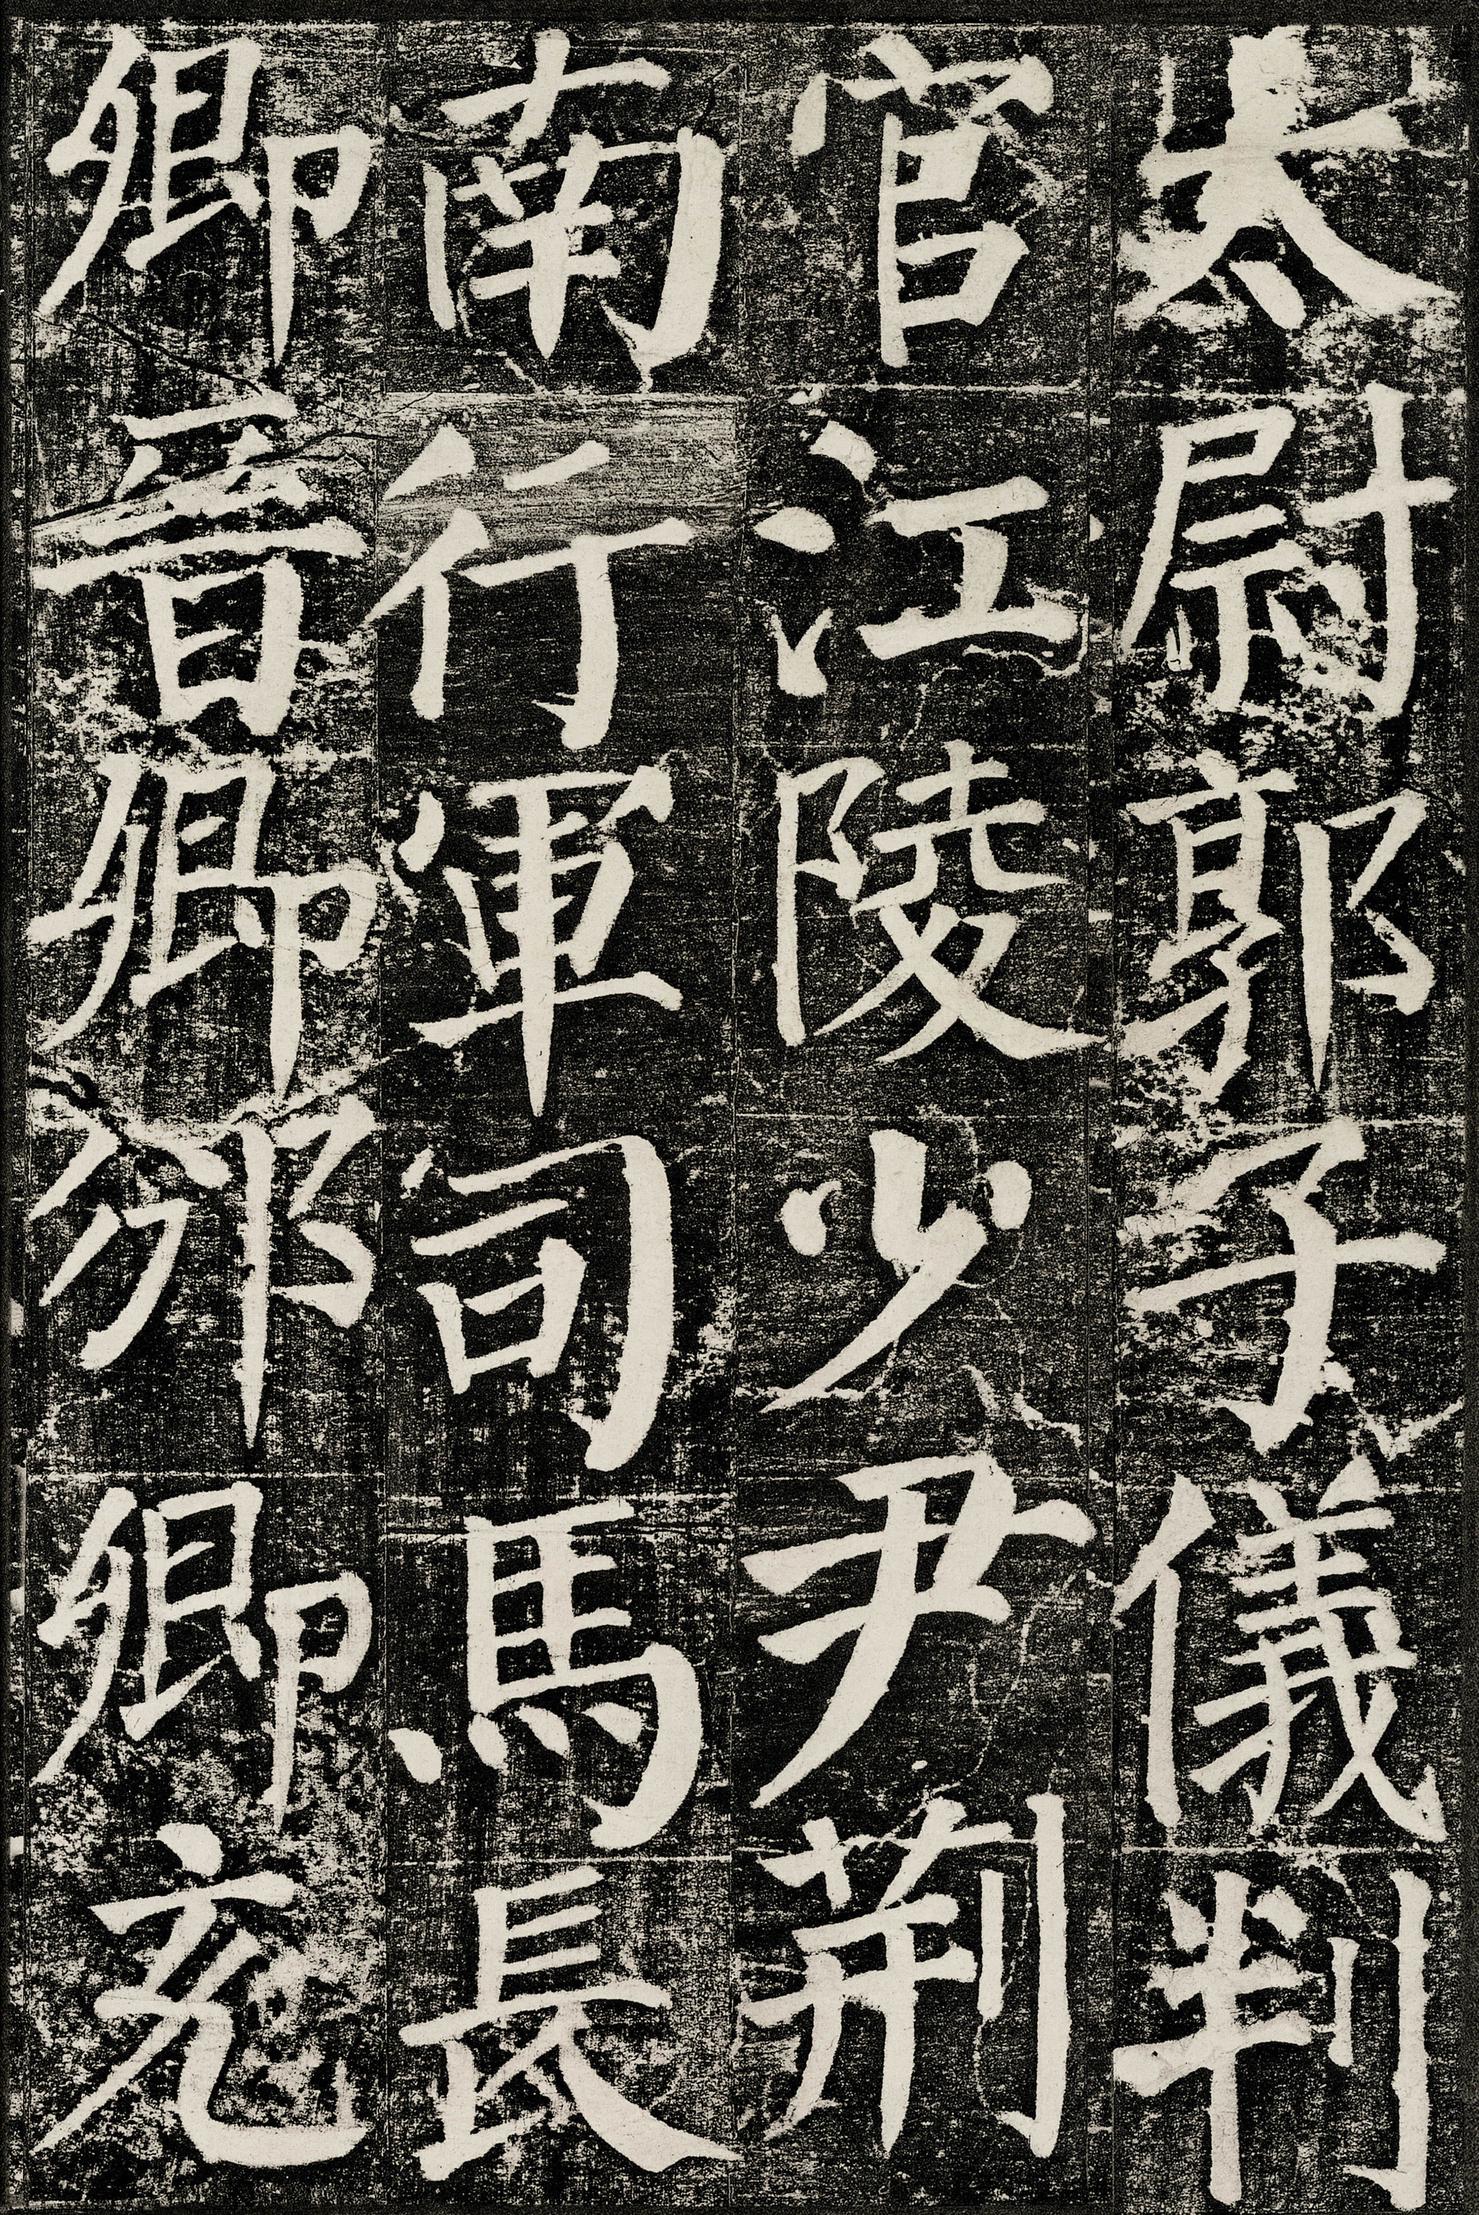 太尉郭子儀判
官江陵少尹荊
南行軍司馬長
卿晉卿邠卿充